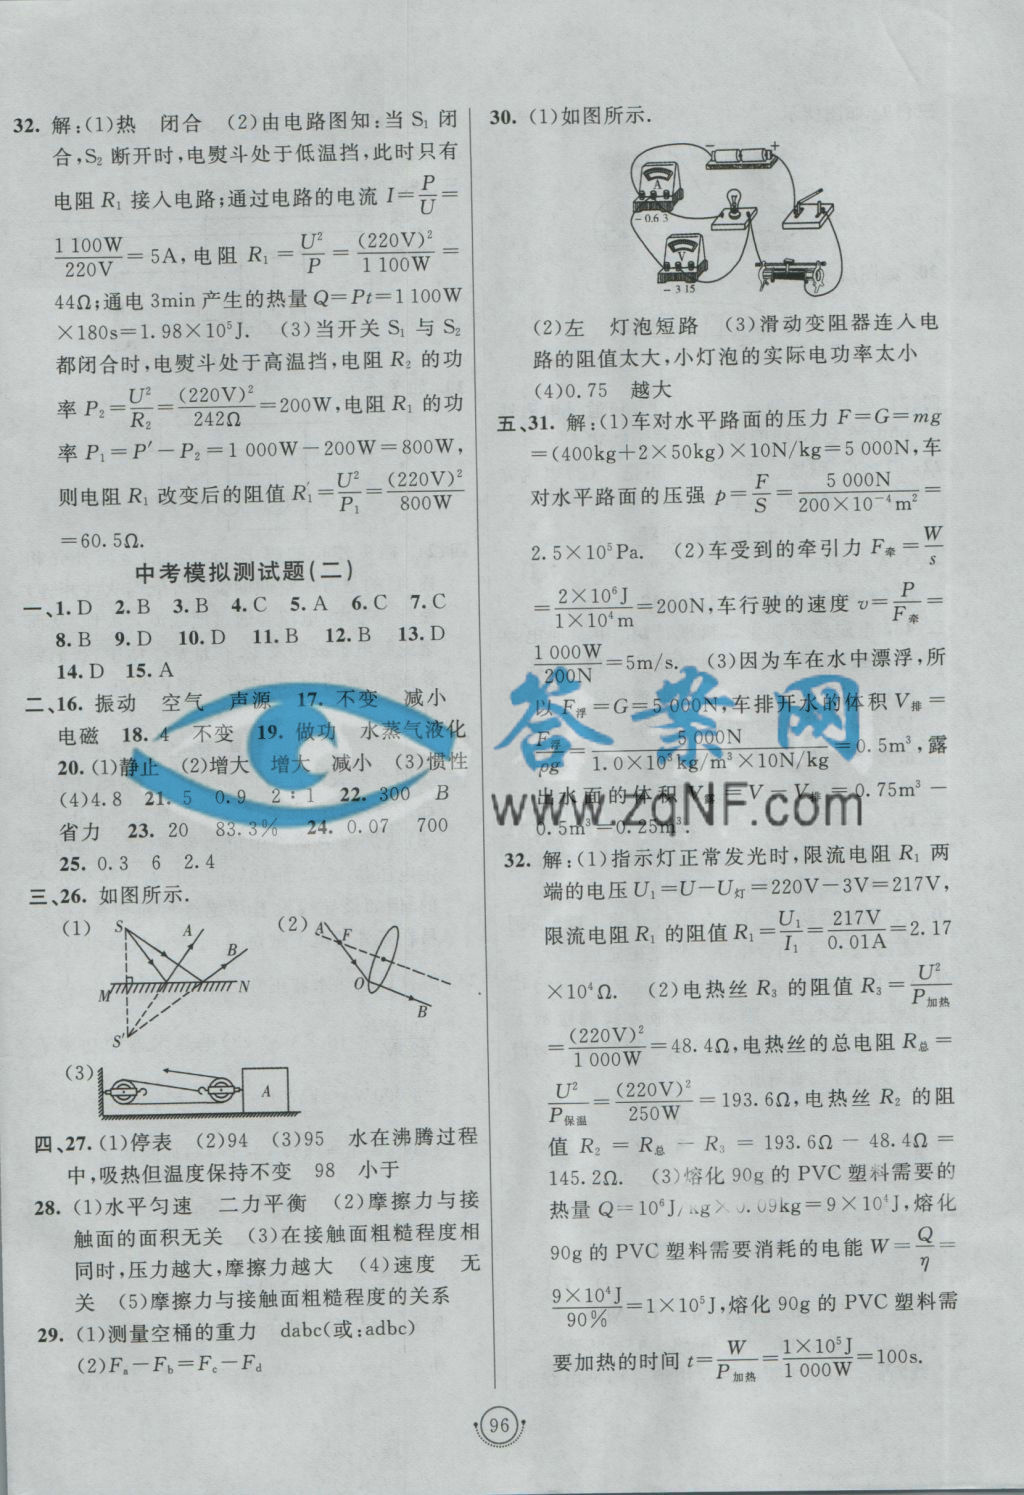 32. 解:(1)热　闭合　(2)由电路图知:当 S₁ 闭
合,S₂ 断开时,电熨斗处于低温挡,此时只有
电阻 R₁ 接入电路;通过电路的电流 I=P/U=
1 100W/220V=5A,电阻 R₁=U²/P=(220V)²/1 100W=
44Ω;通电 3min 产生的热量 Q=Pt=1 100W
×180s=1.98×10⁵J.　(3)当开关 S₁ 与 S₂
都闭合时,电熨斗处于高温挡,电阻 R₂ 的功
率 P₂=U²/R₂=(220V)²/242Ω=200W,电阻 R₁ 的功
率 P₁=P′-P₂=1 000W-200W=800W,
则电阻 R₁ 改变后的阻值 R₁′=U²/P₁=(220V)²/800W
=60.5Ω.
中考模拟测试题(二)
一、1. D　2. B　3. B　4. C　5. A　6. C　7. C
8. B　9. D　10. D　11. B　12. B　13. D
14. D　15. A
二、16. 振动　空气　声源　17. 不变　减小
电磁　18. 4　不变　19. 做功　水蒸气液化
20. (1)静止　(2)增大　增大　减小　(3)惯性
(4)4.8　21. 5　0.9　2∶1　22. 300　B
省力　23. 20　83.3%　24. 0.07　700
25. 0.3　6　2.4
三、26. 如图所示.
(1)　S　A　B　M　N　S′
(2)　A　F　O　B′
(3)　A
四、27. (1)停表　(2)94　(3)95　水在沸腾过程
中,吸热但温度保持不变　98　小于
28. (1)水平匀速　二力平衡　(2)摩擦力与接
触面的面积无关　(3)在接触面粗糙程度相
同时,压力越大,摩擦力越大　(4)速度　无
关　(5)摩擦力与接触面粗糙程度的关系
29. (1)测量空桶的重力　dabc(或:adbc)
(2)Fₐ-F_b=F_c-F_d
30. (1)如图所示.
−　+
A
− 0.6 3
V
− 3 15
(2)左　灯泡短路　(3)滑动变阻器连入电
路的阻值太大,小灯泡的实际电功率太小
(4)0.75　越大
五、31. 解:(1)车对水平路面的压力 F=G=mg
=(400kg+2×50kg)×10N/kg=5 000N,车
对水平路面的压强 p=F/S=5 000N/200×10⁻⁴m²=
2.5×10⁵Pa.　(2)车受到的牵引力 F牵=W/s
=2×10⁶J/1×10⁴m=200N,车行驶的速度 v=P/F牵=
1 000W/200N=5m/s.　(3)因为车在水中漂浮,所
以 F浮=G=5 000N,车排开水的体积 V排=
F浮/ρg=5 000N/1.0×10³kg/m³×10N/kg=0.5m³,露
出水面的体积 V露=V-V排=0.75m³-
0.5m³=0.25m³.
32. 解:(1)指示灯正常发光时,限流电阻 R₁ 两
端的电压 U₁=U-U灯=220V-3V=217V,
限流电阻 R₁ 的阻值 R₁=U₁/I₁=217V/0.01A=2.17
×10⁴Ω.　(2)电热丝 R₃ 的阻值 R₃=U²/P加热
=(220V)²/1 000W=48.4Ω,电热丝的总电阻 R总=
U²/P保温=(220V)²/250W=193.6Ω,电热丝 R₂ 的阻
值 R₂=R总-R₃=193.6Ω-48.4Ω=
145.2Ω.　(3)熔化 90g 的 PVC 塑料需要的
热量 Q=10⁶J/kg×0.09kg=9×10⁴J,熔化
90g 的 PVC 塑料需要消耗的电能 W=Q/η=
9×10⁴J/90%=1×10⁵J,熔化 90g 的 PVC 塑料需
要加热的时间 t=W/P加热=1×10⁵J/1 000W=100s.
答案网
www.zqNF.com
96